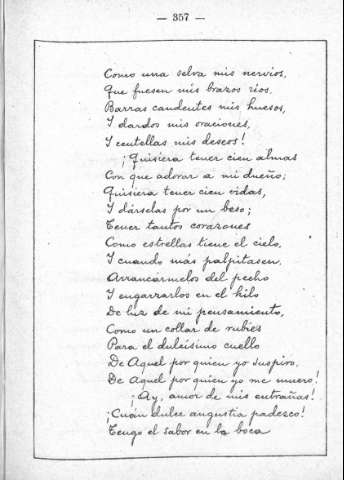 — 357 —
Como una selva mis nervios,
Que fuesen mis brazos rios,
Barras candentes mis huesos,
I dardos mis oraciones,
I centellas mis deseos!
¡Quisiera tener cien almas
Con que adorar a mi dueño;
Quisiera tener cien vidas,
I dárselas por un beso;
Tener tantos corazones
Como estrellas tiene el cielo,
I cuando más palpitasen,
Arrancármelos del pecho
I engarzarlos en el hilo
De luz de mi pensamiento,
Como un collar de rubíes
Para el dulcísimo cuello
De Aquel por quien yo suspiro,
De Aquel por quien yo me muero!
¡Ay, amor de mis entrañas!
¡Cuán dulce angustia padezco!
Tengo el sabor en la boca